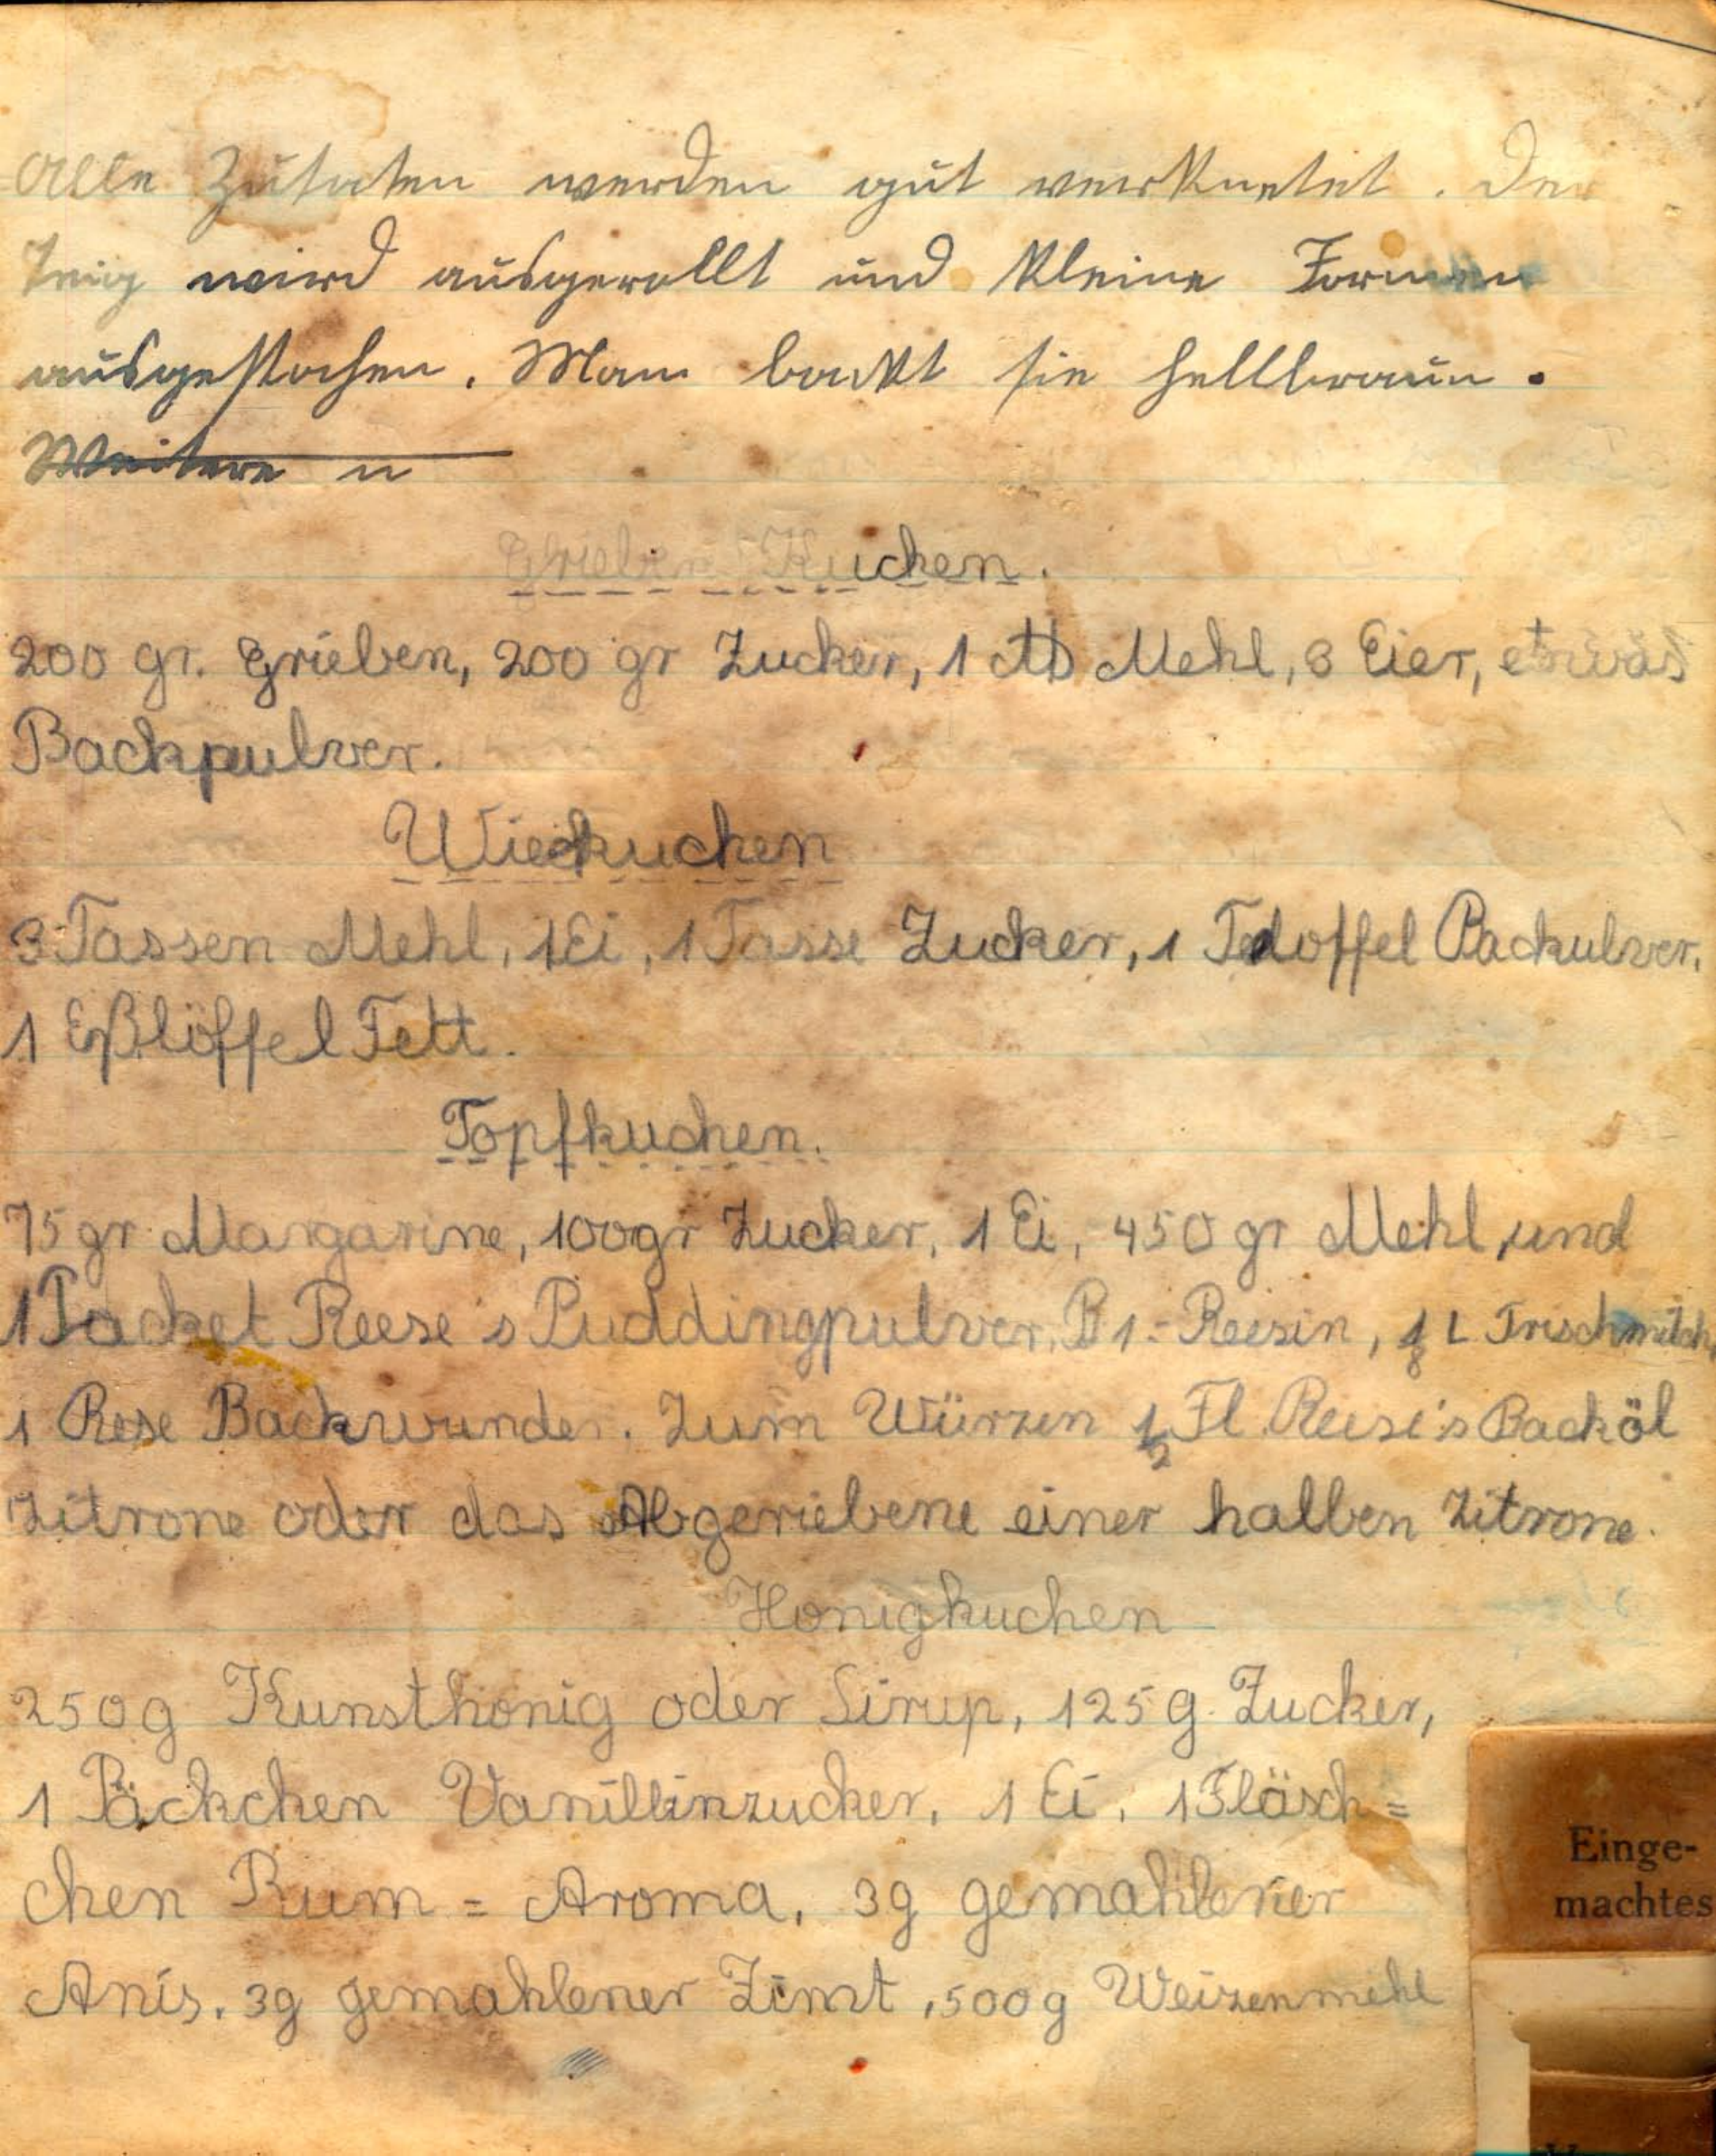 Alle Zutaten werden gut verknetet. Der
Teig wird ausgerollt und kleine Formen
ausgestochen. Man backt sie hellbraun.
Weitere n
Grieben Kuchen.
200 gr. Grieben, 200 gr Zucker, 1 ℔ Mehl, 3 Eier, etwas
Backpulver.
3 Tassen Mehl, 1 Ei, 1 Tasse Zucker, 1 Backulver,
1 Eßlöffel Fett.
Topfkuchen.
75 gr Margarine, 100gr Zucker, 1 Ei, 450 gr Mehl, und
1 Packet Reese's Puddingpulver, B 1.- Reesin, 1/8 L Frischmilch,
1 Rese Backwunder. Zum Würzen 1/2 Fl. Reese's Backöl
Zitrone oder das Abgeriebene einer halben Zitrone.
Honigkuchen
250g Kunsthonig oder Sirup, 125 g. Zucker,
1 Päckchen Vanillinzucker, 1 Ei, 1 Fläsch=
chen Rum = Aroma, 3g gemahlener
Anis, 3g gemahlener Zimt, 500g Weizenmehl
Einge-
machtes